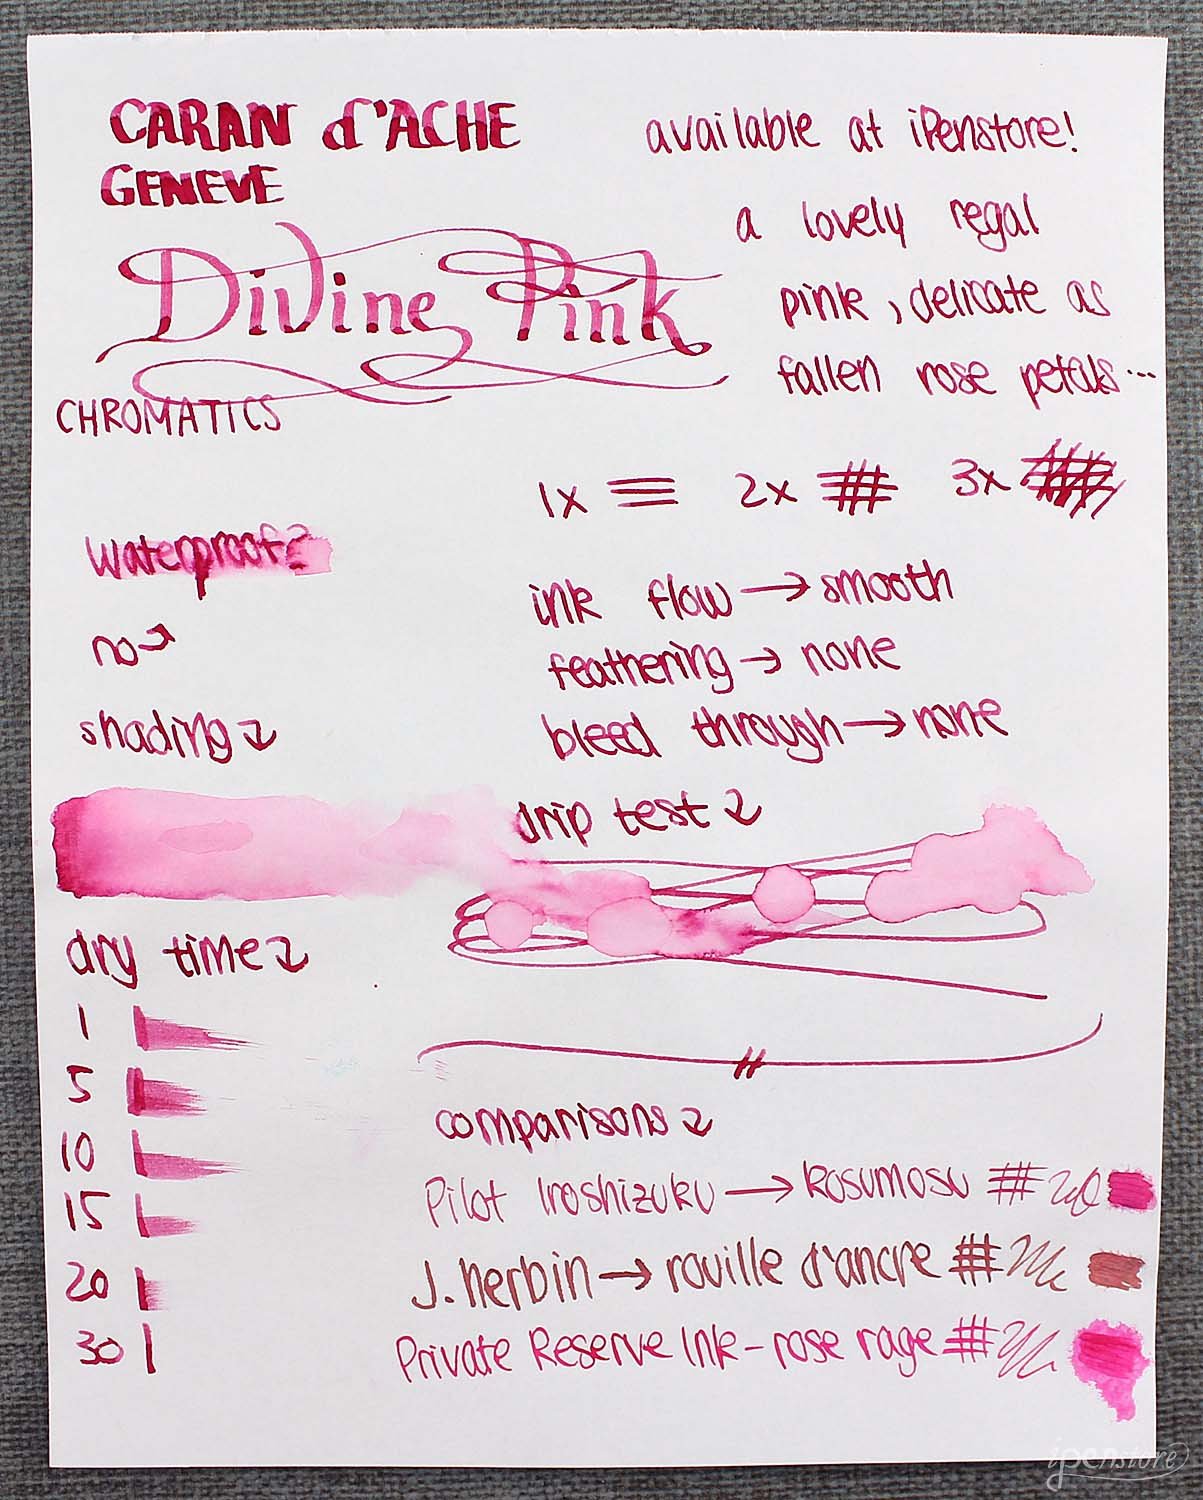 CARAN d'ACHE
GENEVE
Divine Pink
CHROMATICS
available at iPenstore!
a lovely regal
pink, delicate as
fallen rose petals...
1x 2x 3x
waterproof?
no
shading
ink flow → smooth
feathering → none
bleed through → none
drip test
dry time
1
5
10
15
20
30
comparisons
Pilot Iroshizuku → kosumosu
J. herbin → rouille d'ancre
Private Reserve Ink - rose rage
ipenstore